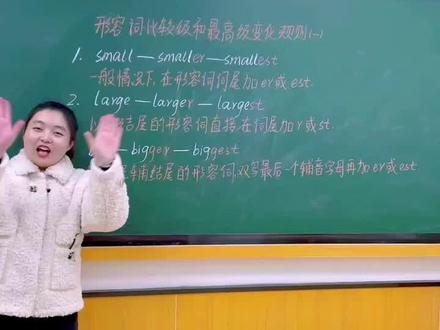 形容词比较级和最高级变化规则(一)
1. small — smaller — smallest
一般情况下,在形容词词尾加er或est.
2. large — larger — largest
以 结尾的形容词直接在词尾加r或st.
— bigger — biggest
辅结尾的形容词,双写最后一个辅音字母再加er或est